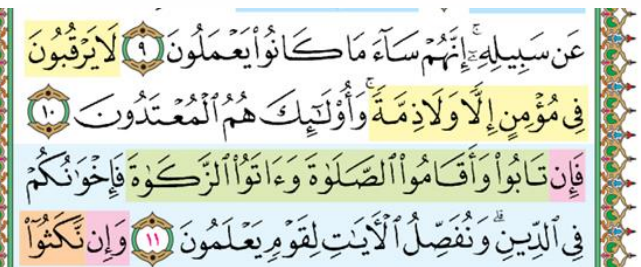 عَن سَبِيلِهِۦٓۚ إِنَّهُمْ سَآءَ مَا كَانُوا۟ يَعْمَلُونَ ٩ لَا يَرْقُبُونَ
فِى مُؤْمِنٍ إِلًّا وَلَا ذِمَّةً ۚ وَأُو۟لَـٰٓئِكَ هُمُ ٱلْمُعْتَدُونَ ١٠
فَإِن تَابُوا۟ وَأَقَامُوا۟ ٱلصَّلَوٰةَ وَءَاتَوُا۟ ٱلزَّكَوٰةَ فَإِخْوَٰنُكُمْ
فِى ٱلدِّينِ ۗ وَنُفَصِّلُ ٱلْـَٔايَـٰتِ لِقَوْمٍ يَعْلَمُونَ ١١ وَإِن نَّكَثُوٓا۟